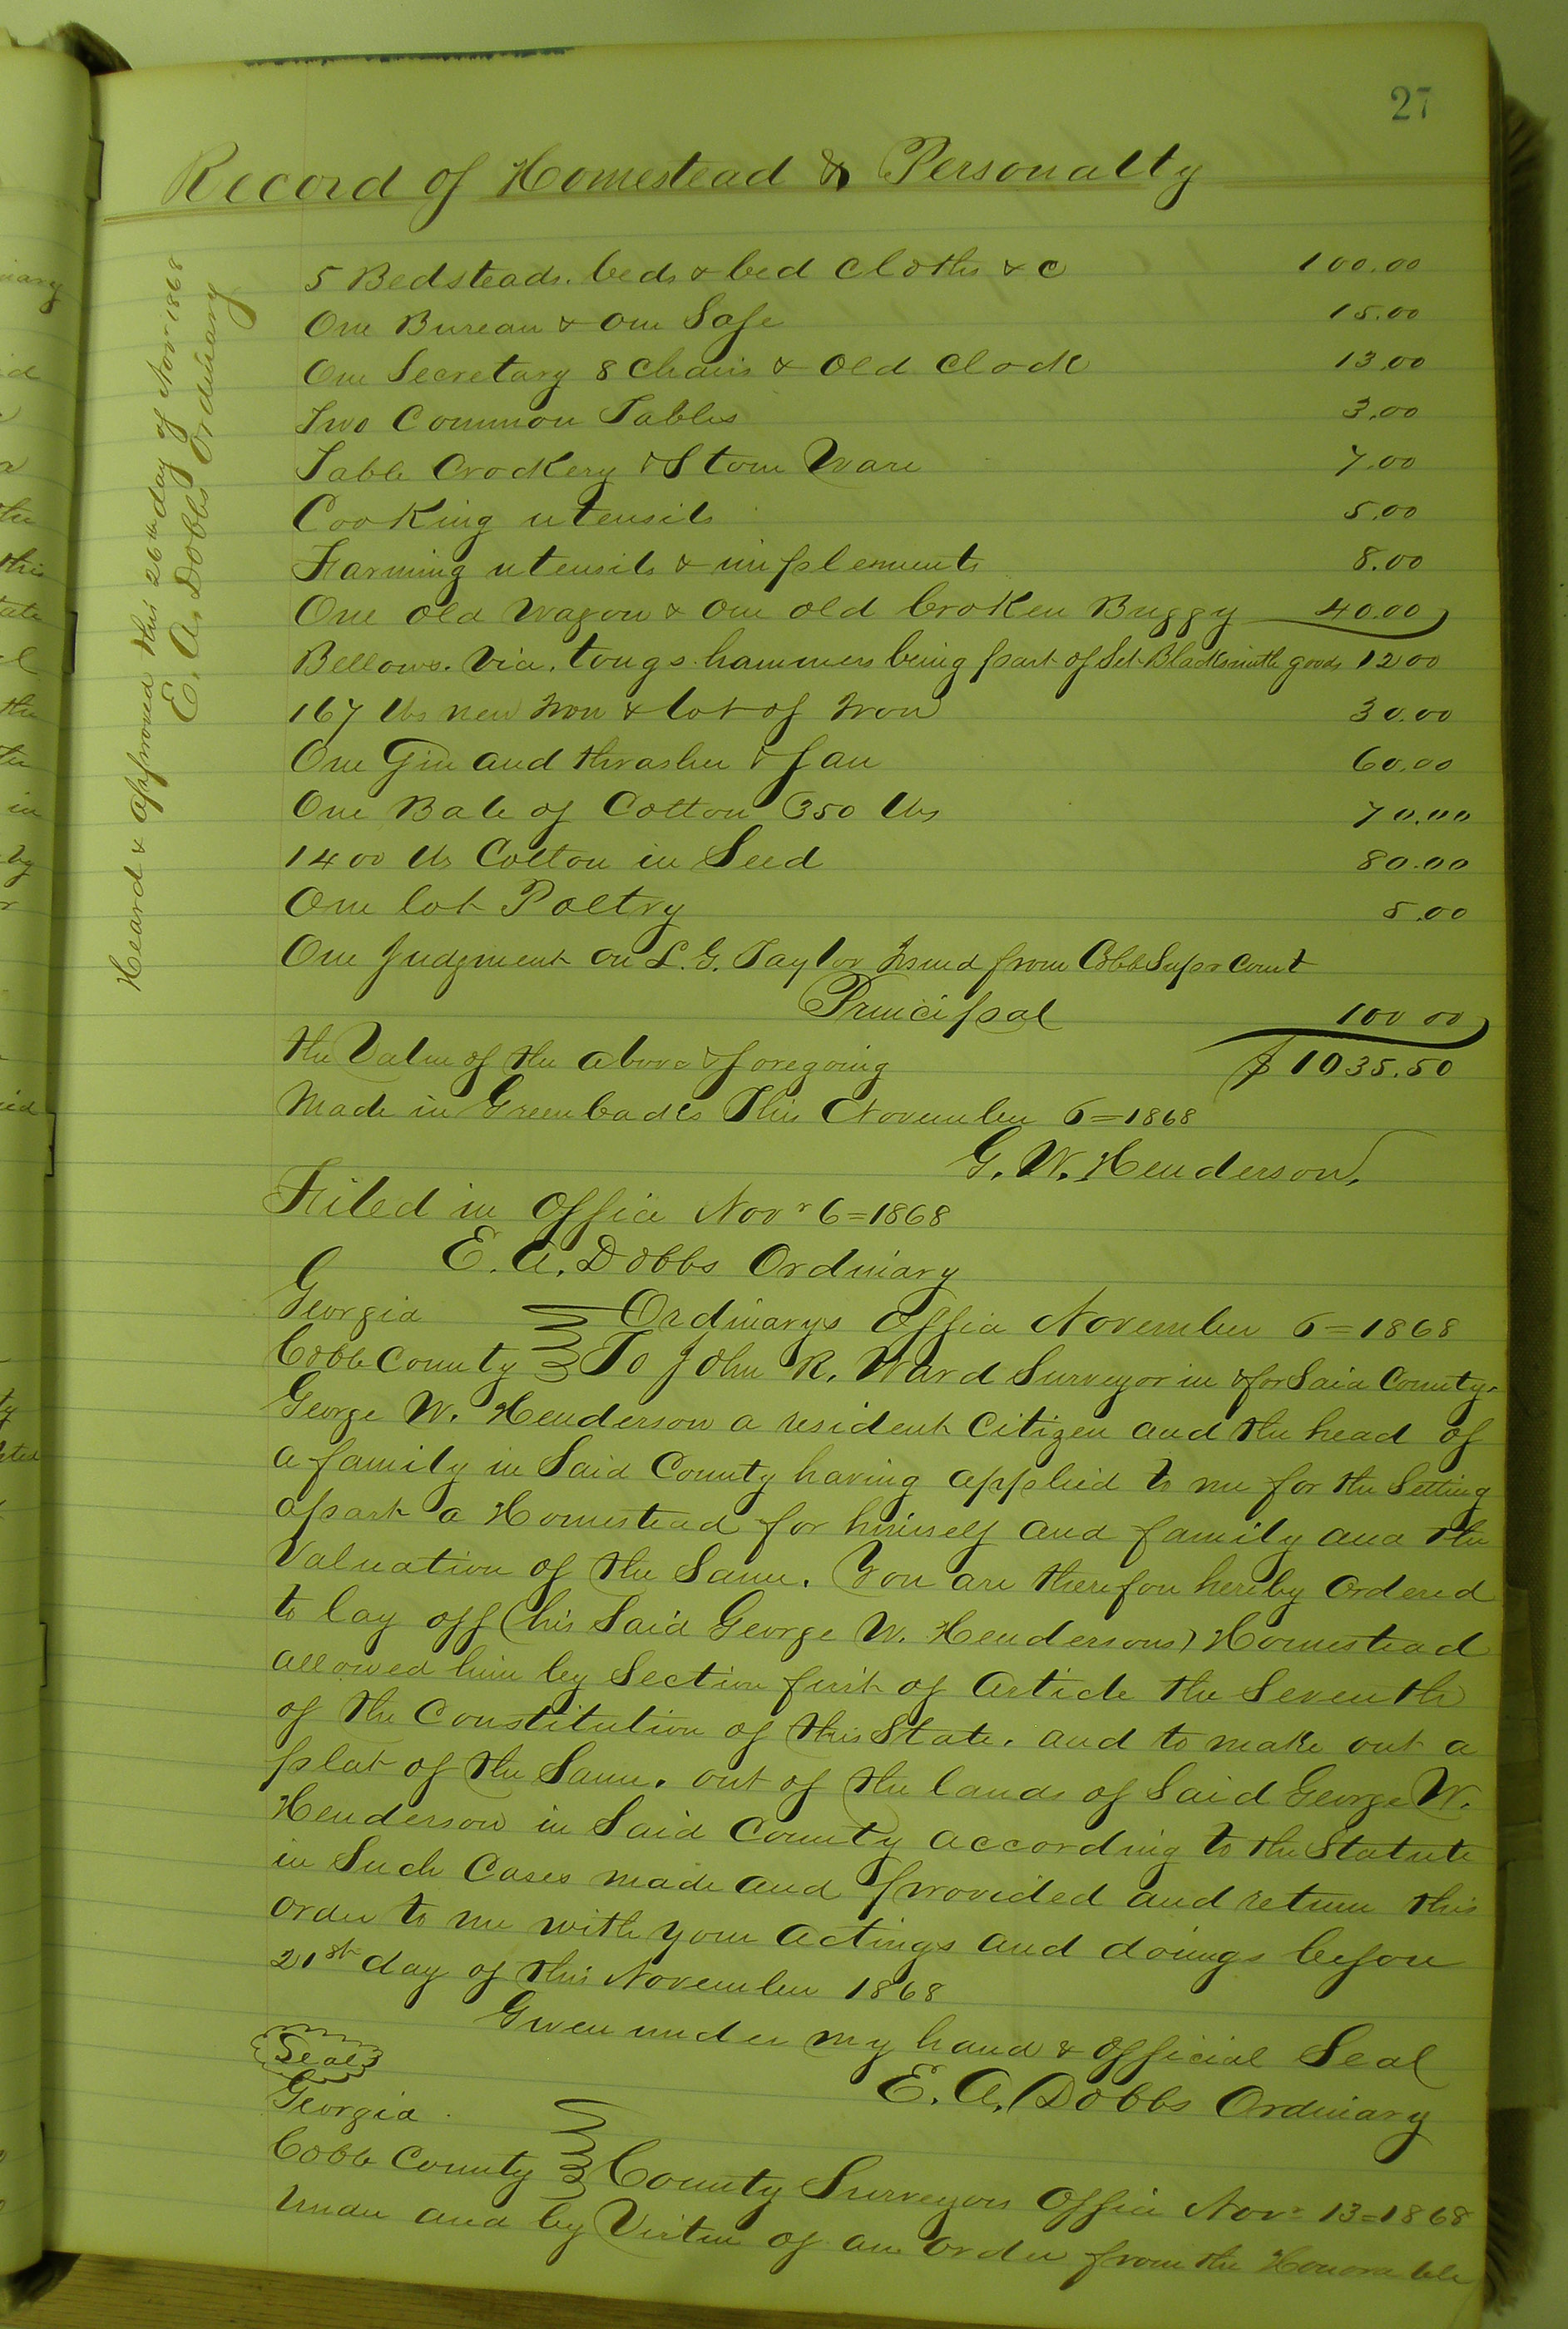 27
Record of Homestead & Personalty
5 Bedsteads. beds & bed cloths & c 100.00
One Bureau & one Safe 15.00
One Secretary 8 Chairs & old clock 13.00
Two Common Tables 3.00
Table Crockery & Stone Ware 7.00
Cooking utensils 5.00
Farming utensils & implements 8.00
One old Wagon & one old broken Buggy 40.00
Bellows. Vice. tongs. hammers being part of Set Blacksmith goods 12 00
167 lbs new Iron & lot of Iron 30.00
One Gin and thrasher & fan 60.00
One Bale of Cotton 350 lbs 70.00
1400 lbs Cotton in Seed 80.00
One lot Poltry 5.00
One Judgment on L. G. Taylor Issued from Cobb Supr Court
Principal 100 00
the Value of the above & foregoing $ 1035.50
Made in Greenbacks This November 6=1868
G. W. Henderson.
Filed in Office Novr 6=1868
E. A. Dobbs Ordinary
Georgia Ordinarys Office November 6=1868
Cobb County To John R. Ward Surveyor in & for Said County.
George W. Henderson a resident Citizen and the head of
a family in Said County having applied to me for the Setting
apart a Homestead for himself and family and the
Valuation of the Same. You are therefore hereby Ordered
to lay off (his Said George W. Hendersons) Homestead
allowed him by Section first of Article the Seventh
of the Constitution of this State. and to make out a
plat of the Same. out of the lands of Said George W.
Henderson in Said County according to the Statute
in Such Cases made and provided and return this
order to me with your actings and doings before
21st day of this November 1868
Given under my hand & official Seal
Seal
E. A. Dobbs Ordinary
Georgia
Cobb County County Surveyors Office Novr 13=1868
Under and by Virtue of an order from the Honorable
Heard & approved this 26th day of Novr 1868
E. A. Dobbs Ordinary